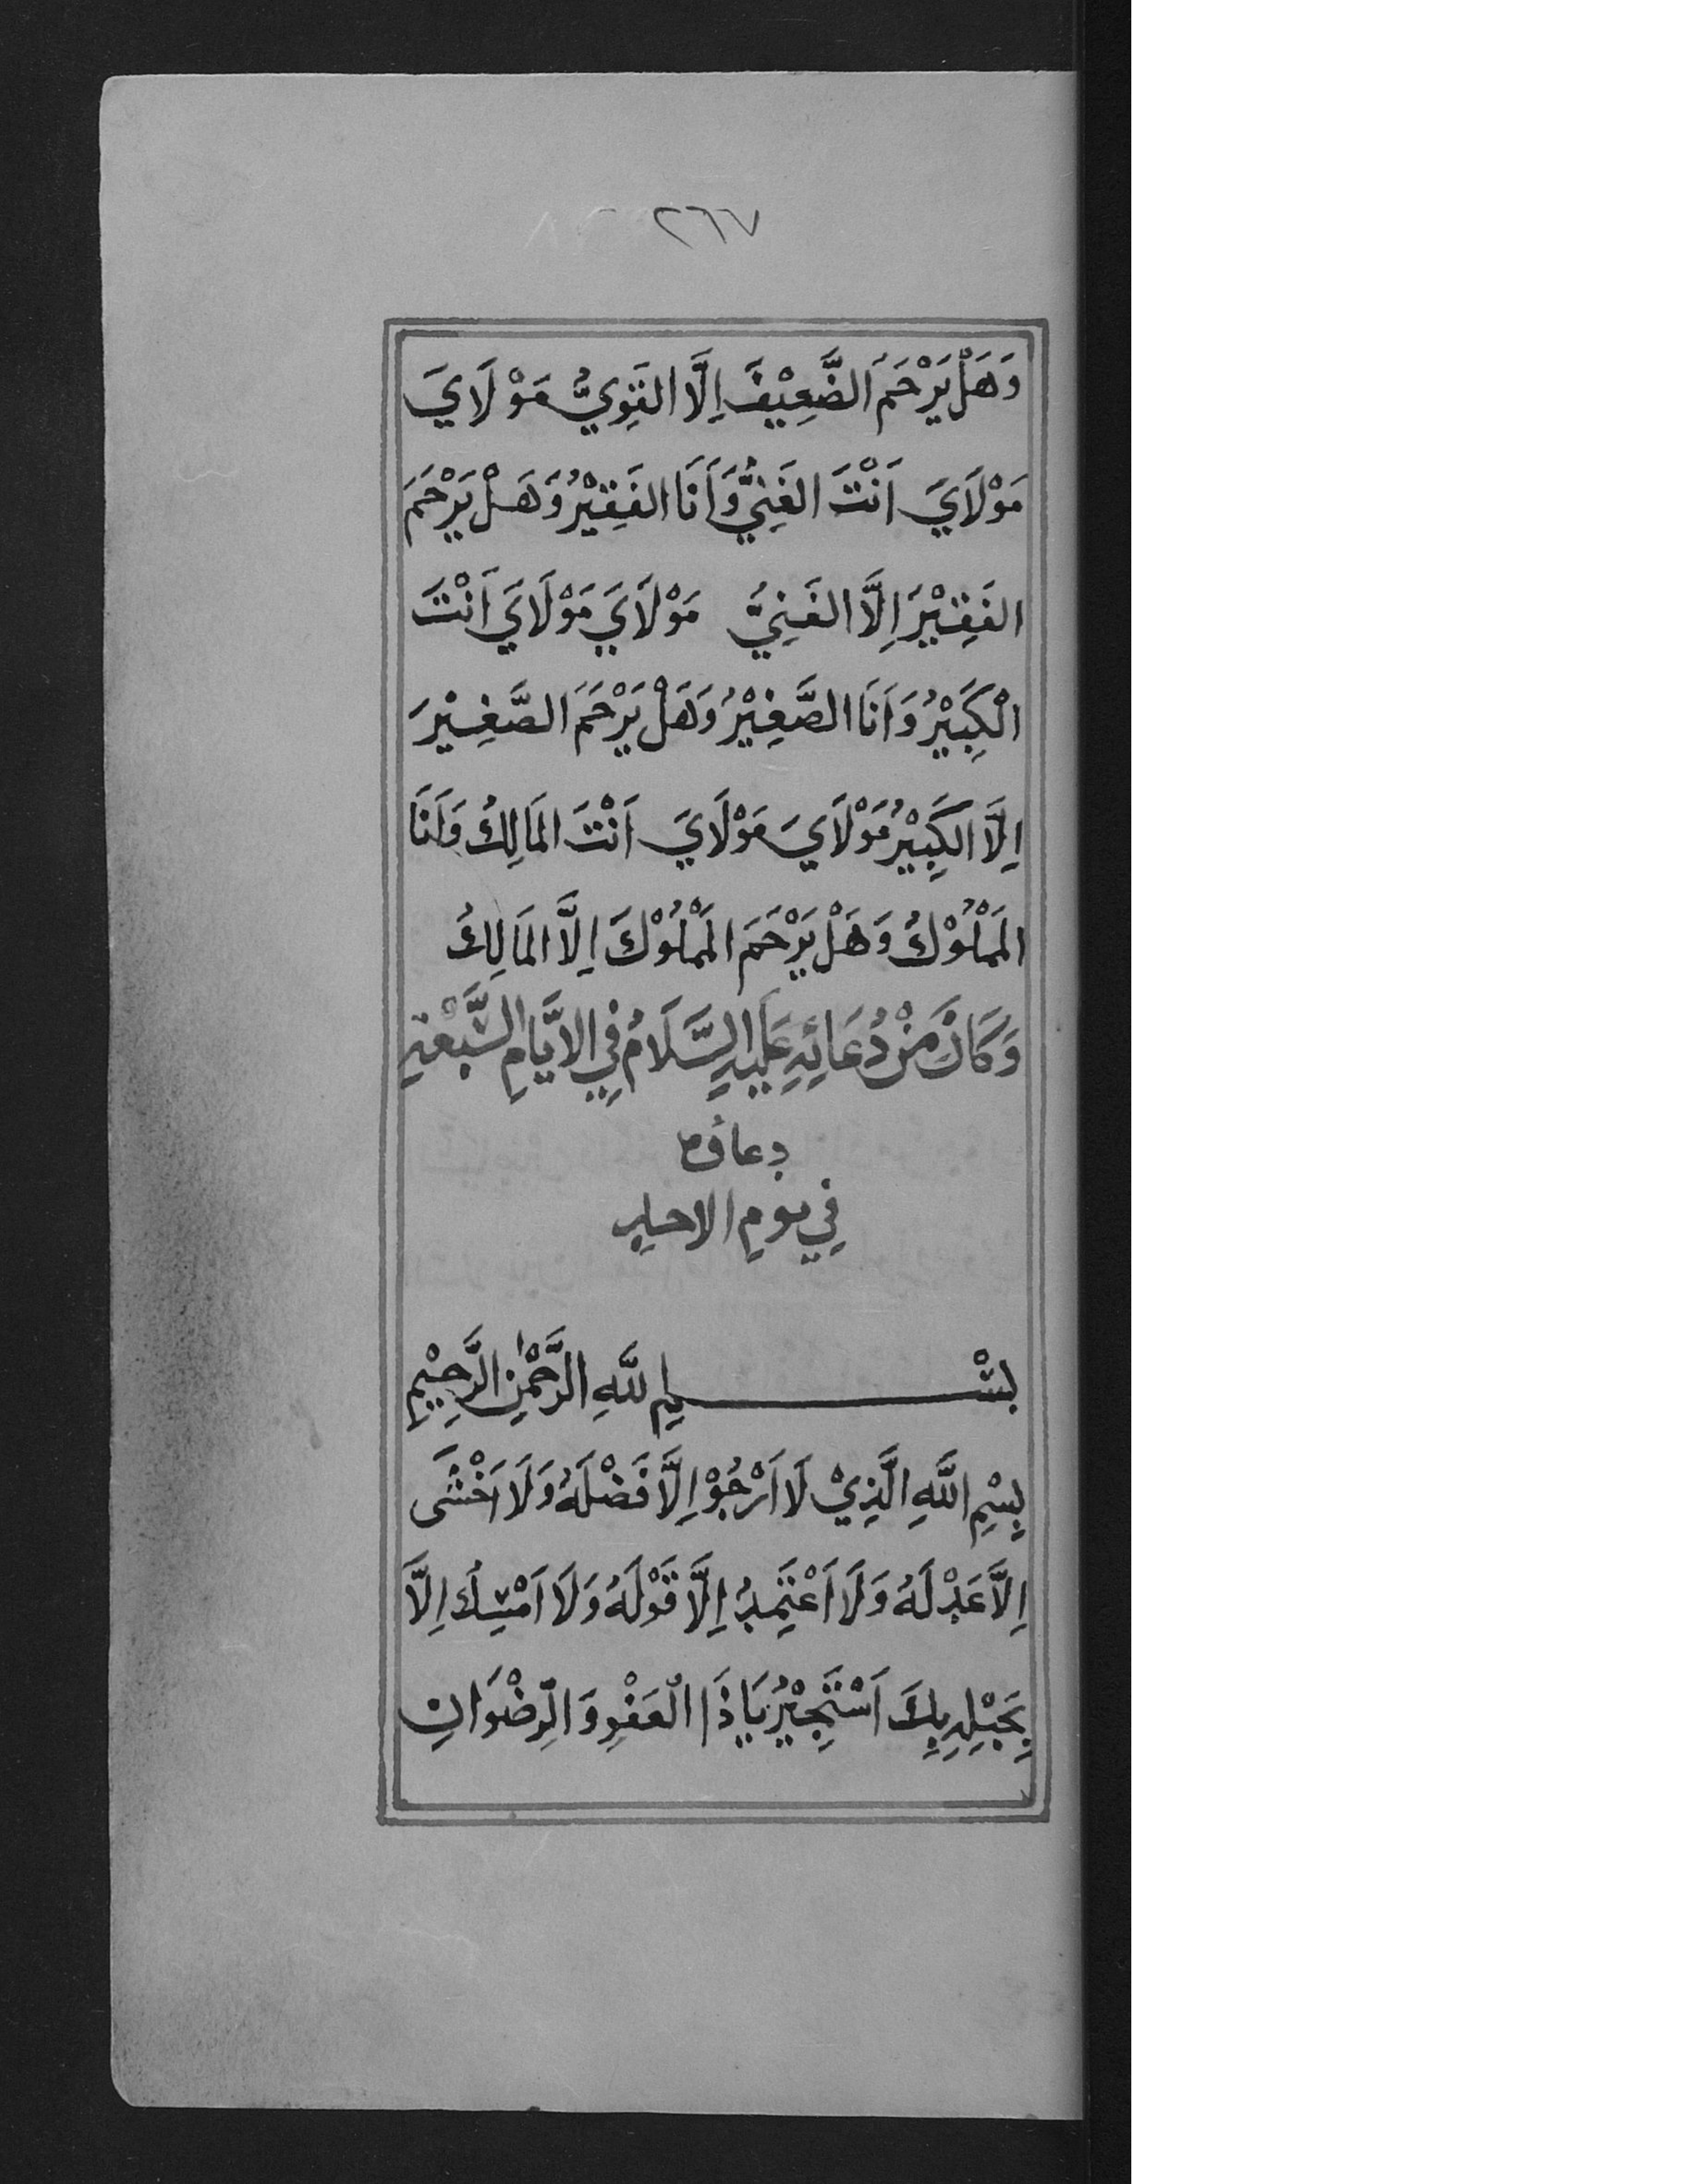 ٢٦٧
وَهَلْ يَرْحَمُ الضَّعِيْفَ اِلَّا القَوِيُّ مَوْلَايَ
مَوْلَايَ اَنْتَ الغَنِيُّ وَاَنَا الفَقِيْرُ وَهَلْ يَرْحَمُ
الفَقِيْرَ اِلَّا الغَنِيُّ مَوْلَايَ مَوْلَايَ اَنْتَ
الْكَبِيْرُ وَاَنَا الصَّغِيْرُ وَهَلْ يَرْحَمُ الصَّغِيْرَ
اِلَّا الكَبِيْرُ مَوْلَايَ مَوْلَايَ اَنْتَ المَالِكُ وَاَنَا
المَمْلُوْكُ وَهَلْ يَرْحَمُ المَمْلُوْكَ اِلَّا المَالِكُ
وَكَانَ مِنْ دُعَائِهِ عَلَيْهِ السَّلَامُ فِي الاَيَّامِ السَّبْعَةِ
دعاؤه
فِي يومِ الاحدِ
بِسْمِ اللَّهِ الرَّحْمٰنِ الرَّحِيْمِ
بِسْمِ اللَّهِ الَّذِيْ لَا اَرْجُوْ اِلَّا فَضْلَهُ وَلَا اَخْشَى
اِلَّا عَدْلَهُ وَلَا اَعْتَمِدُ اِلَّا قَوْلَهُ وَلَا اَمْسِكُ اِلَّا
بِحَبْلِهِ بِكَ اَسْتَجِيْرُ يَا ذَا الْعَفْوِ وَالرِّضْوَانِ